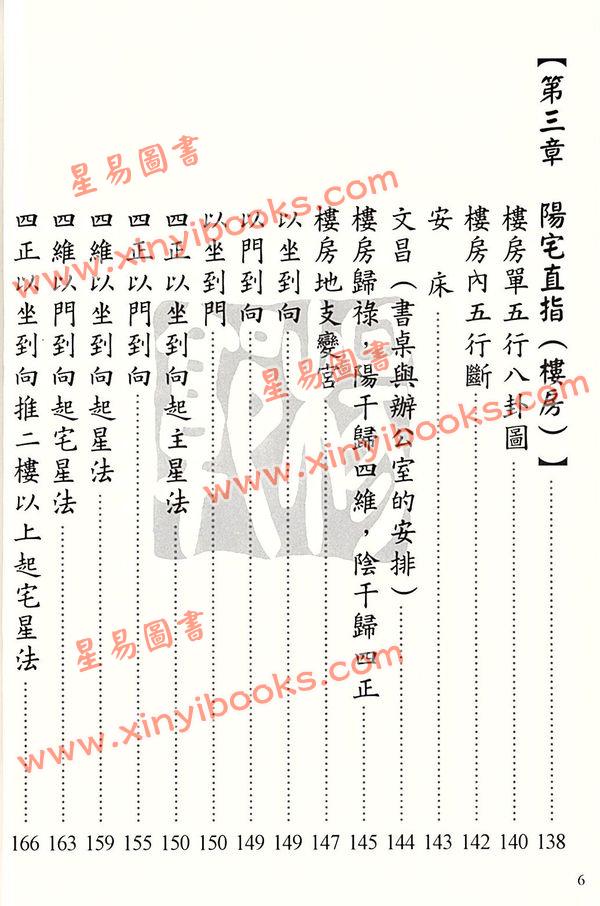 【第三章　陽宅直指（樓房）】 138
樓房單五行八卦圖 140
樓房內五行斷 142
安　床 143
文昌（書桌與辦公室的安排） 144
樓房歸祿，陽干歸四維，陰干歸四正 145
樓房地支變宮 147
以坐到向 149
以門到向 149
以坐到門 150
四正以坐到向起主星法 150
四正以門到向 155
四維以坐到向起星法 159
四維以門到向起宅星法 163
四正以坐到向推二樓以上起宅星法 166
6
星易圖書
www.xinyibooks.com
星易圖書
www.xinyibooks.com
星易圖書
www.xinyibooks.com
星易圖書
www.xinyibooks.com